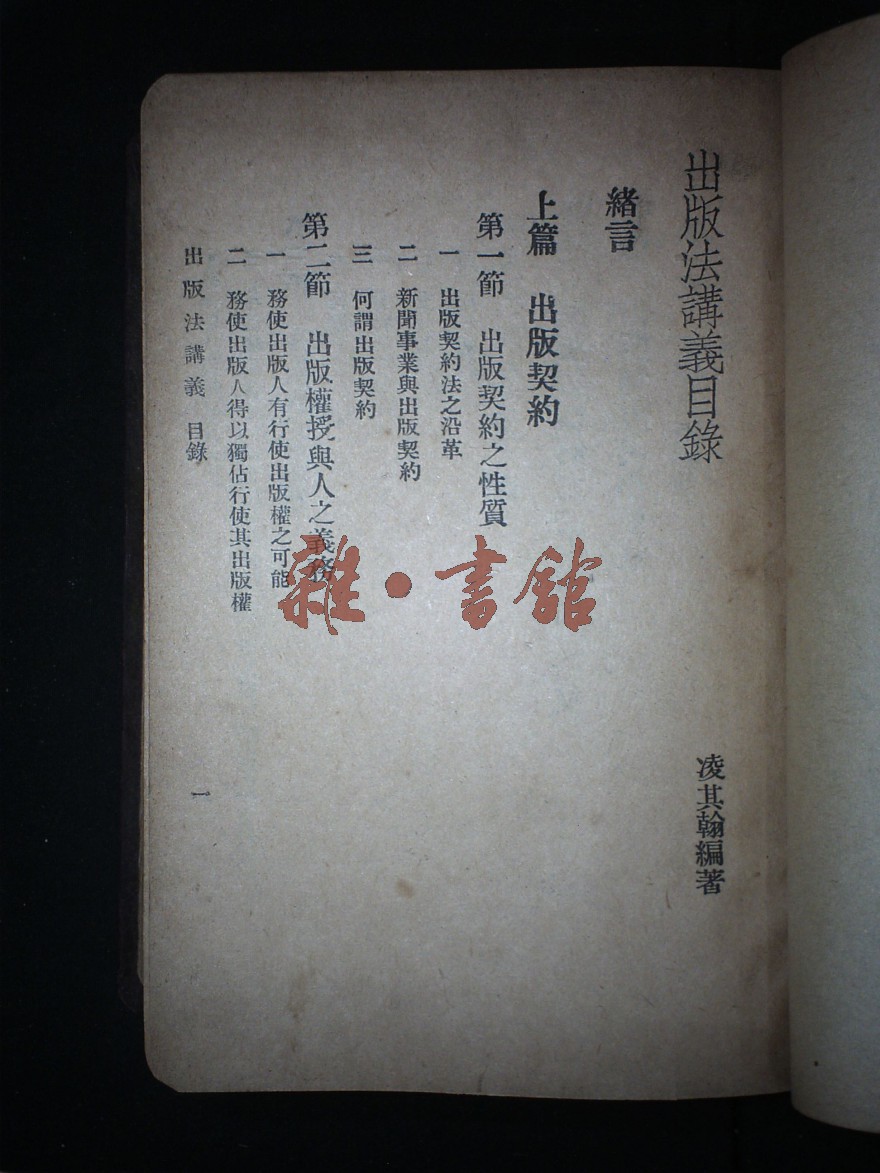 出版法講義目錄
凌其翰編著
緒言
上篇　出版契約
第一節　出版契約之性質
一　出版契約法之沿革
二　新聞事業與出版契約
三　何謂出版契約
第二節　出版權授與人之義務
一　務使出版人有行使出版權之可能
二　務使出版人得以獨佔行使其出版權
出版法講義　目錄
一
雜·書館